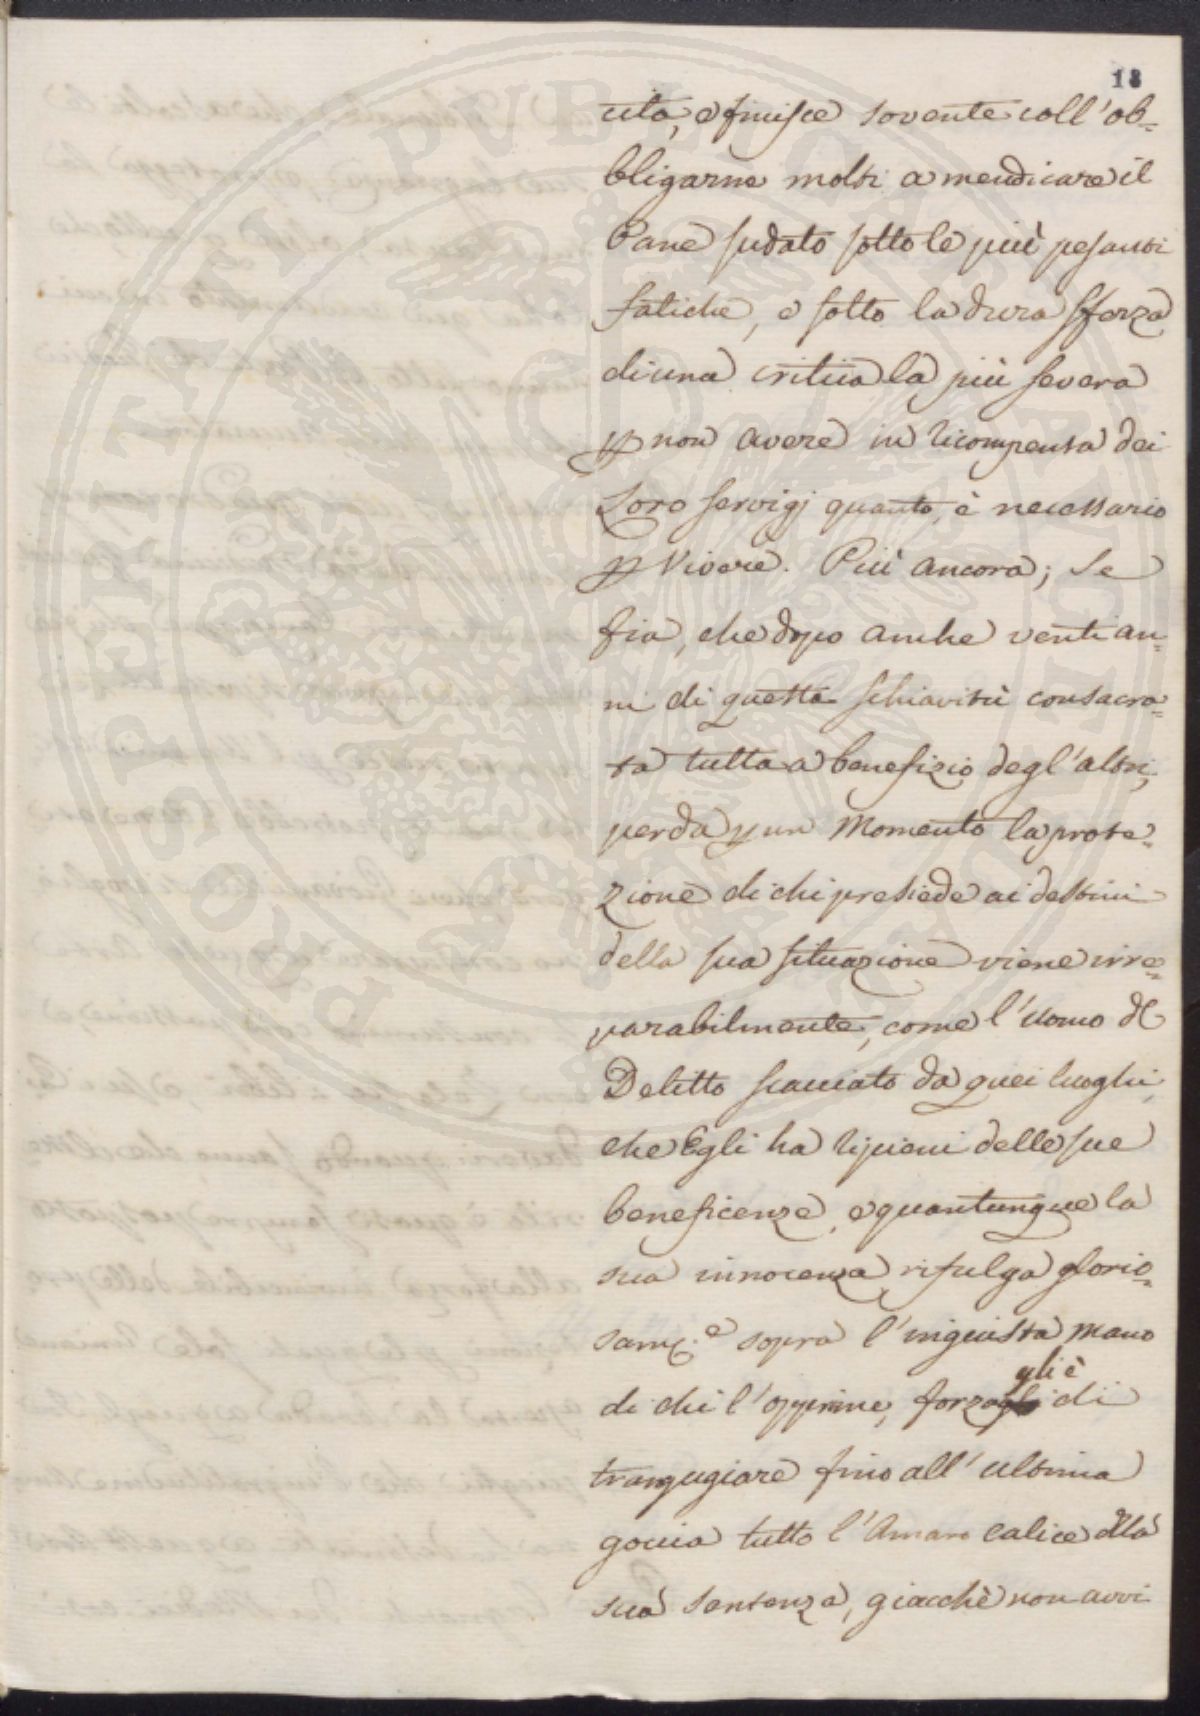 18
cità, e finisce sovente coll'ob=
bligarne molti a mendicare il
Pane sudato sotto le più pesanti
fatiche, e sotto la dura sferza
di una critica la più severa
p non avere in ricompensa dei
Loro servigj quanto è necessario
p Vivere. Più ancora; se
fia, che dopo anche venti an=
ni di questa schiavitù consacra=
ta tutta a benefizio degl'altri,
perda p un Momento la prote=
zione di chi presiede ai destini
della sua situazione viene irre=
parabilmente, come l'uomo del
Delitto scacciato da quei luoghi,
che Egli ha ripieni delle sue
beneficenze, e quantunque la
sua innocenza rifulga glorio=
sam.e sopra l'ingiusta mano
di chi l'opprime, forza gli è di
trangugiare fino all'ultima
goccia tutto l'Amaro calice della
sua sentenza, giacchè non avvi
PROSPERITATI PVBLICAE AVGENDAE